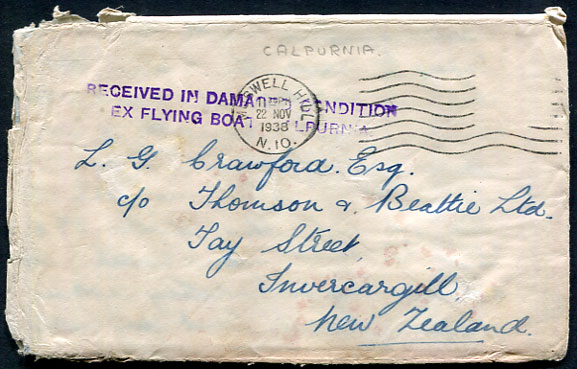 CALPURNIA.
RECEIVED IN DAMA NDITION
EX FLYING BOAT LPURNIA
MUSWELL HILL
22 NOV
1938
N.10.
L. G. Crawford. Esq.
c/o Thomson & Beattie Ltd.
Tay Street,
Invercargill,
New Zealand.